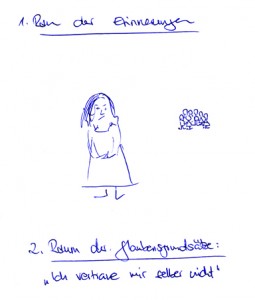 1. Raum der Erinnerungen
2. Raum der Glaubensgrundsätze:
"Ich vertraue mir selber nicht"